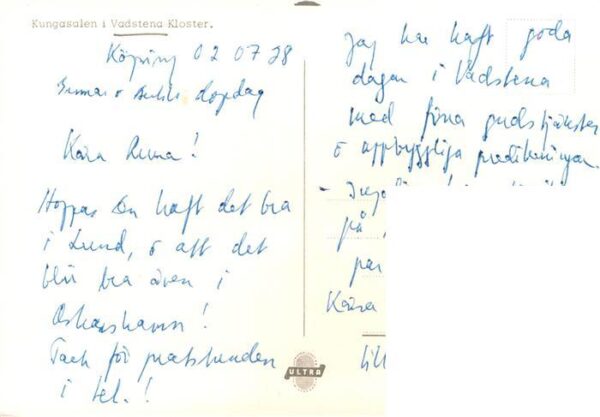 Kungasalen i Vadstena Kloster.
Köping 02 07 28
dopdag
Kära Runa!
Hoppas Du haft det bra
i Lund, o att det
blir bra även i
Oskarshamn!
Tack för pratstunden
i tel.!
Jag har haft goda
dagar i Vadstena
med fina gudstjänster
o uppbyggliga predikningar
på
par
Kära
till
ULTRA